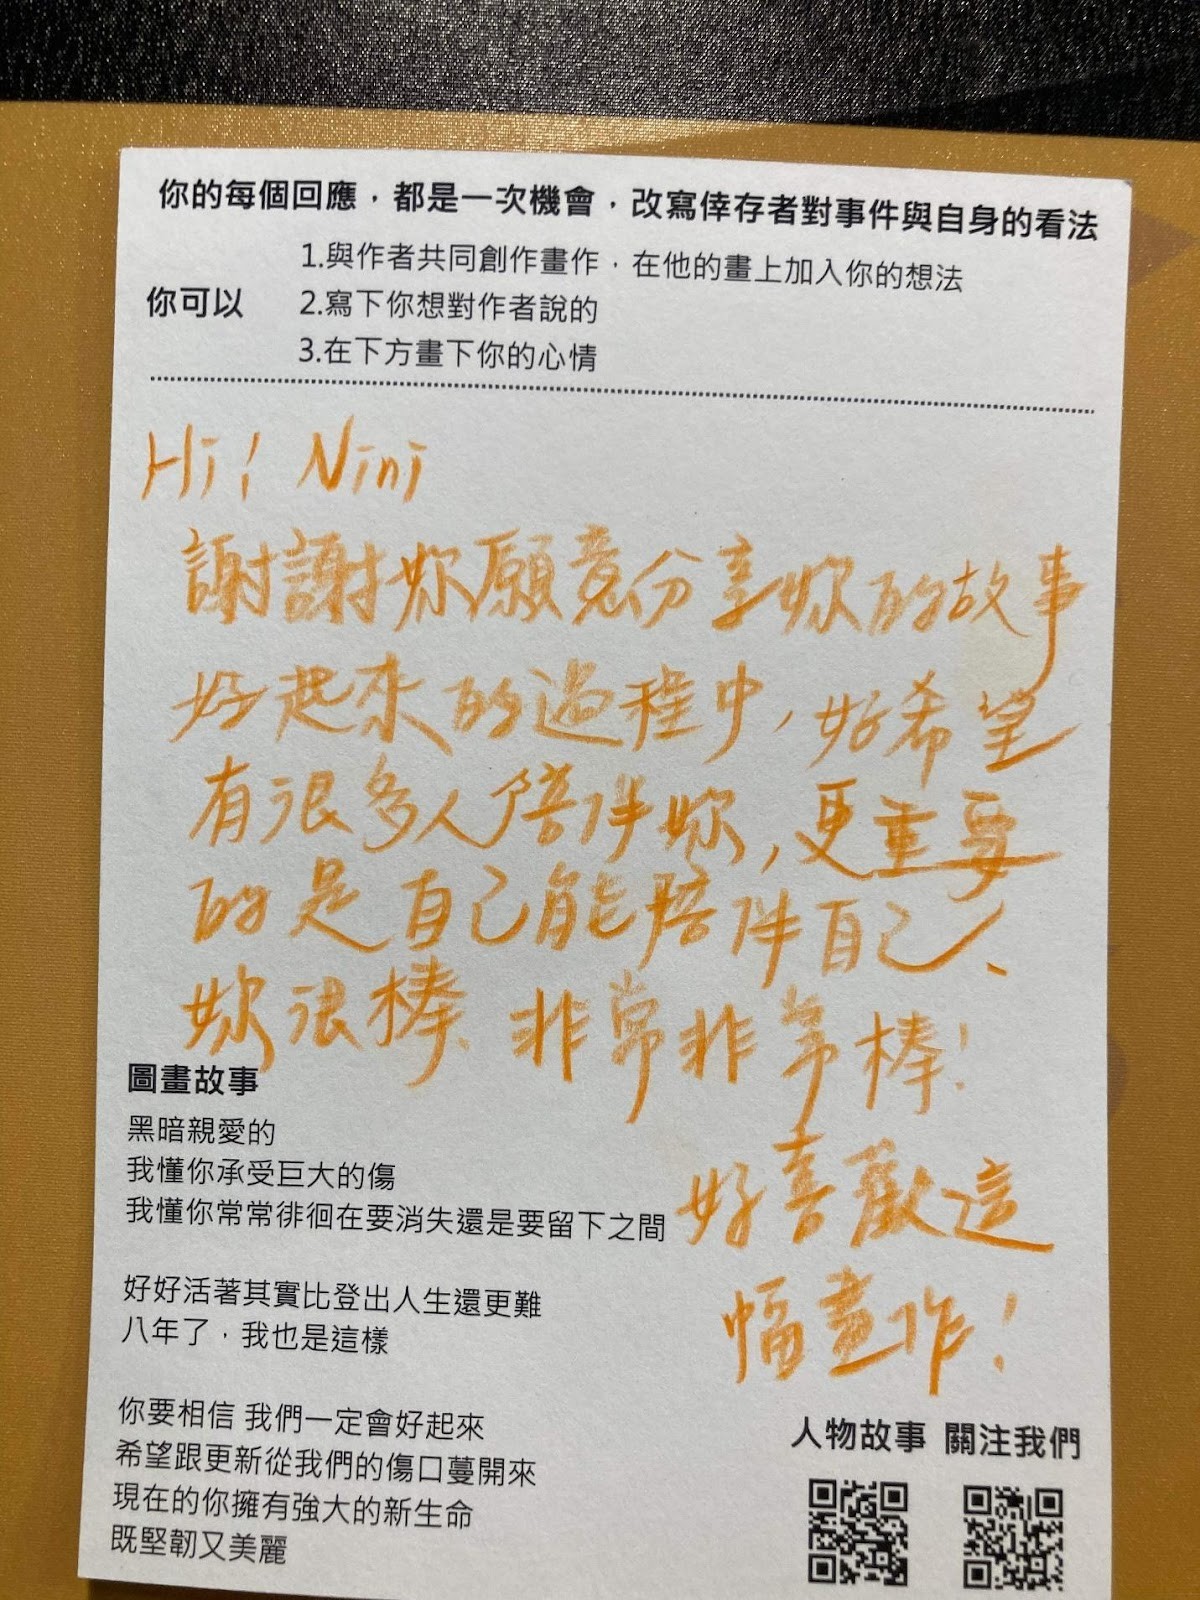 你的每個回應，都是一次機會，改寫倖存者對事件與自身的看法
你可以
1.與作者共同創作畫作，在他的畫上加入你的想法
2.寫下你想對作者說的
3.在下方畫下你的心情
Hi! Nini
謝謝妳願意分享妳的故事
好起來的過程中，好希望
有很多人陪伴妳，更重要
的是自己能陪伴自己、
妳很棒、非常非常棒！
好喜歡這
幅畫作！
圖畫故事
黑暗親愛的
我懂你承受巨大的傷
我懂你常常徘徊在要消失還是要留下之間
好好活著其實比登出人生還更難
八年了，我也是這樣
你要相信 我們一定會好起來
希望跟更新從我們的傷口蔓開來
現在的你擁有強大的新生命
既堅韌又美麗
人物故事 關注我們